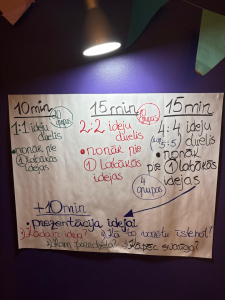 10min
1:1 ideju
duelis
•nonāk pie
1 labākās
idejas
15min
2:2 ideju
duelis
•nonāk pie
1 labākās
idejas
15min
4:4 ideju
(vai 5:5) duelis
•nonāk
pie 1 labākās
idejas
4 grupas
+10min
•prezentācija idejai
1) Kāda ir ideja? 2) Kā to varētu īstenot?
3) Kam paredzēta? 4) Kāpēc svarīga?